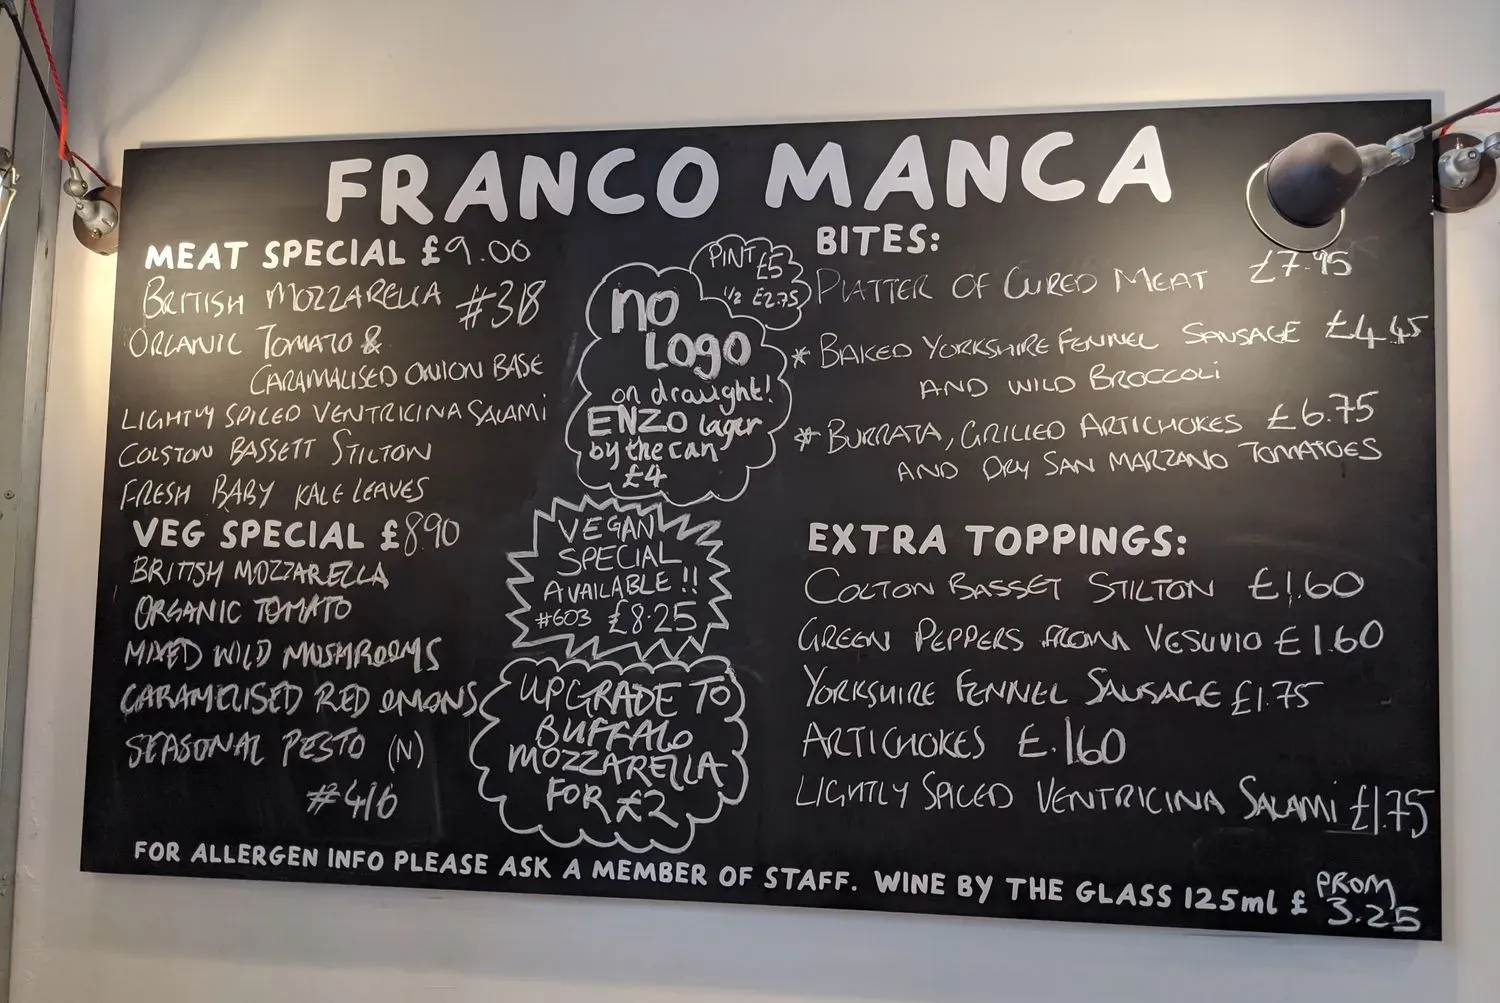 FRANCO MANCA
MEAT SPECIAL £9.00
BRITISH MOZZARELLA #318
ORGANIC TOMATO &
CARAMALISED ONION BASE
LIGHTLY SPICED VENTRICINA SALAMI
COLSTON BASSETT STILTON
FRESH BABY KALE LEAVES
VEG SPECIAL £8.90
BRITISH MOZZARELLA
ORGANIC TOMATO
MIXED WILD MUSHROOMS
CARAMELISED RED ONIONS
SEASONAL PESTO (N)
#416
PINT £5
1/2 £2.75
no
LOGO
on draught!
ENZO lager
by the can
£4
VEGAN
SPECIAL
AVAILABLE!!
#603 £8.25
UPGRADE TO
BUFFALO
MOZZARELLA
FOR £2
BITES:
PLATTER OF CURED MEAT £7.95
* BAKED YORKSHIRE FENNEL SAUSAGE £4.45
AND WILD BROCCOLI
* BURRATA, GRILLED ARTICHOKES £6.75
AND DRY SAN MARZANO TOMATOES
EXTRA TOPPINGS:
COLTON BASSET STILTON £1.60
GREEN PEPPERS FROM VESUVIO £1.60
YORKSHIRE FENNEL SAUSAGE £1.75
ARTICHOKES £.160
LIGHTLY SPICED VENTRICINA SALAMI £1.75
FOR ALLERGEN INFO PLEASE ASK A MEMBER OF STAFF. WINE BY THE GLASS 125ml £ FROM 3.25